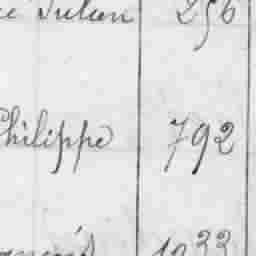 Julien 256
Philippe 792
1033